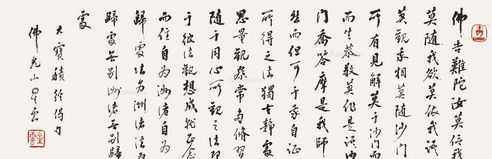 佛告難陀汝莫信我
莫隨我欲莫依我語
莫觀我相莫隨沙門
所有見解莫于沙門
而生恭敬莫作是語沙
門喬答摩是我師
然而但可于我自証
所得之法獨在靜處
思量觀察常多修習
隨于用心所觀之法即
于彼法觀想成就正念
而住自為洲渚自為
歸處法為洲渚法為
歸處無別洲渚無別歸
處
大寶積經偈句
佛光山星雲